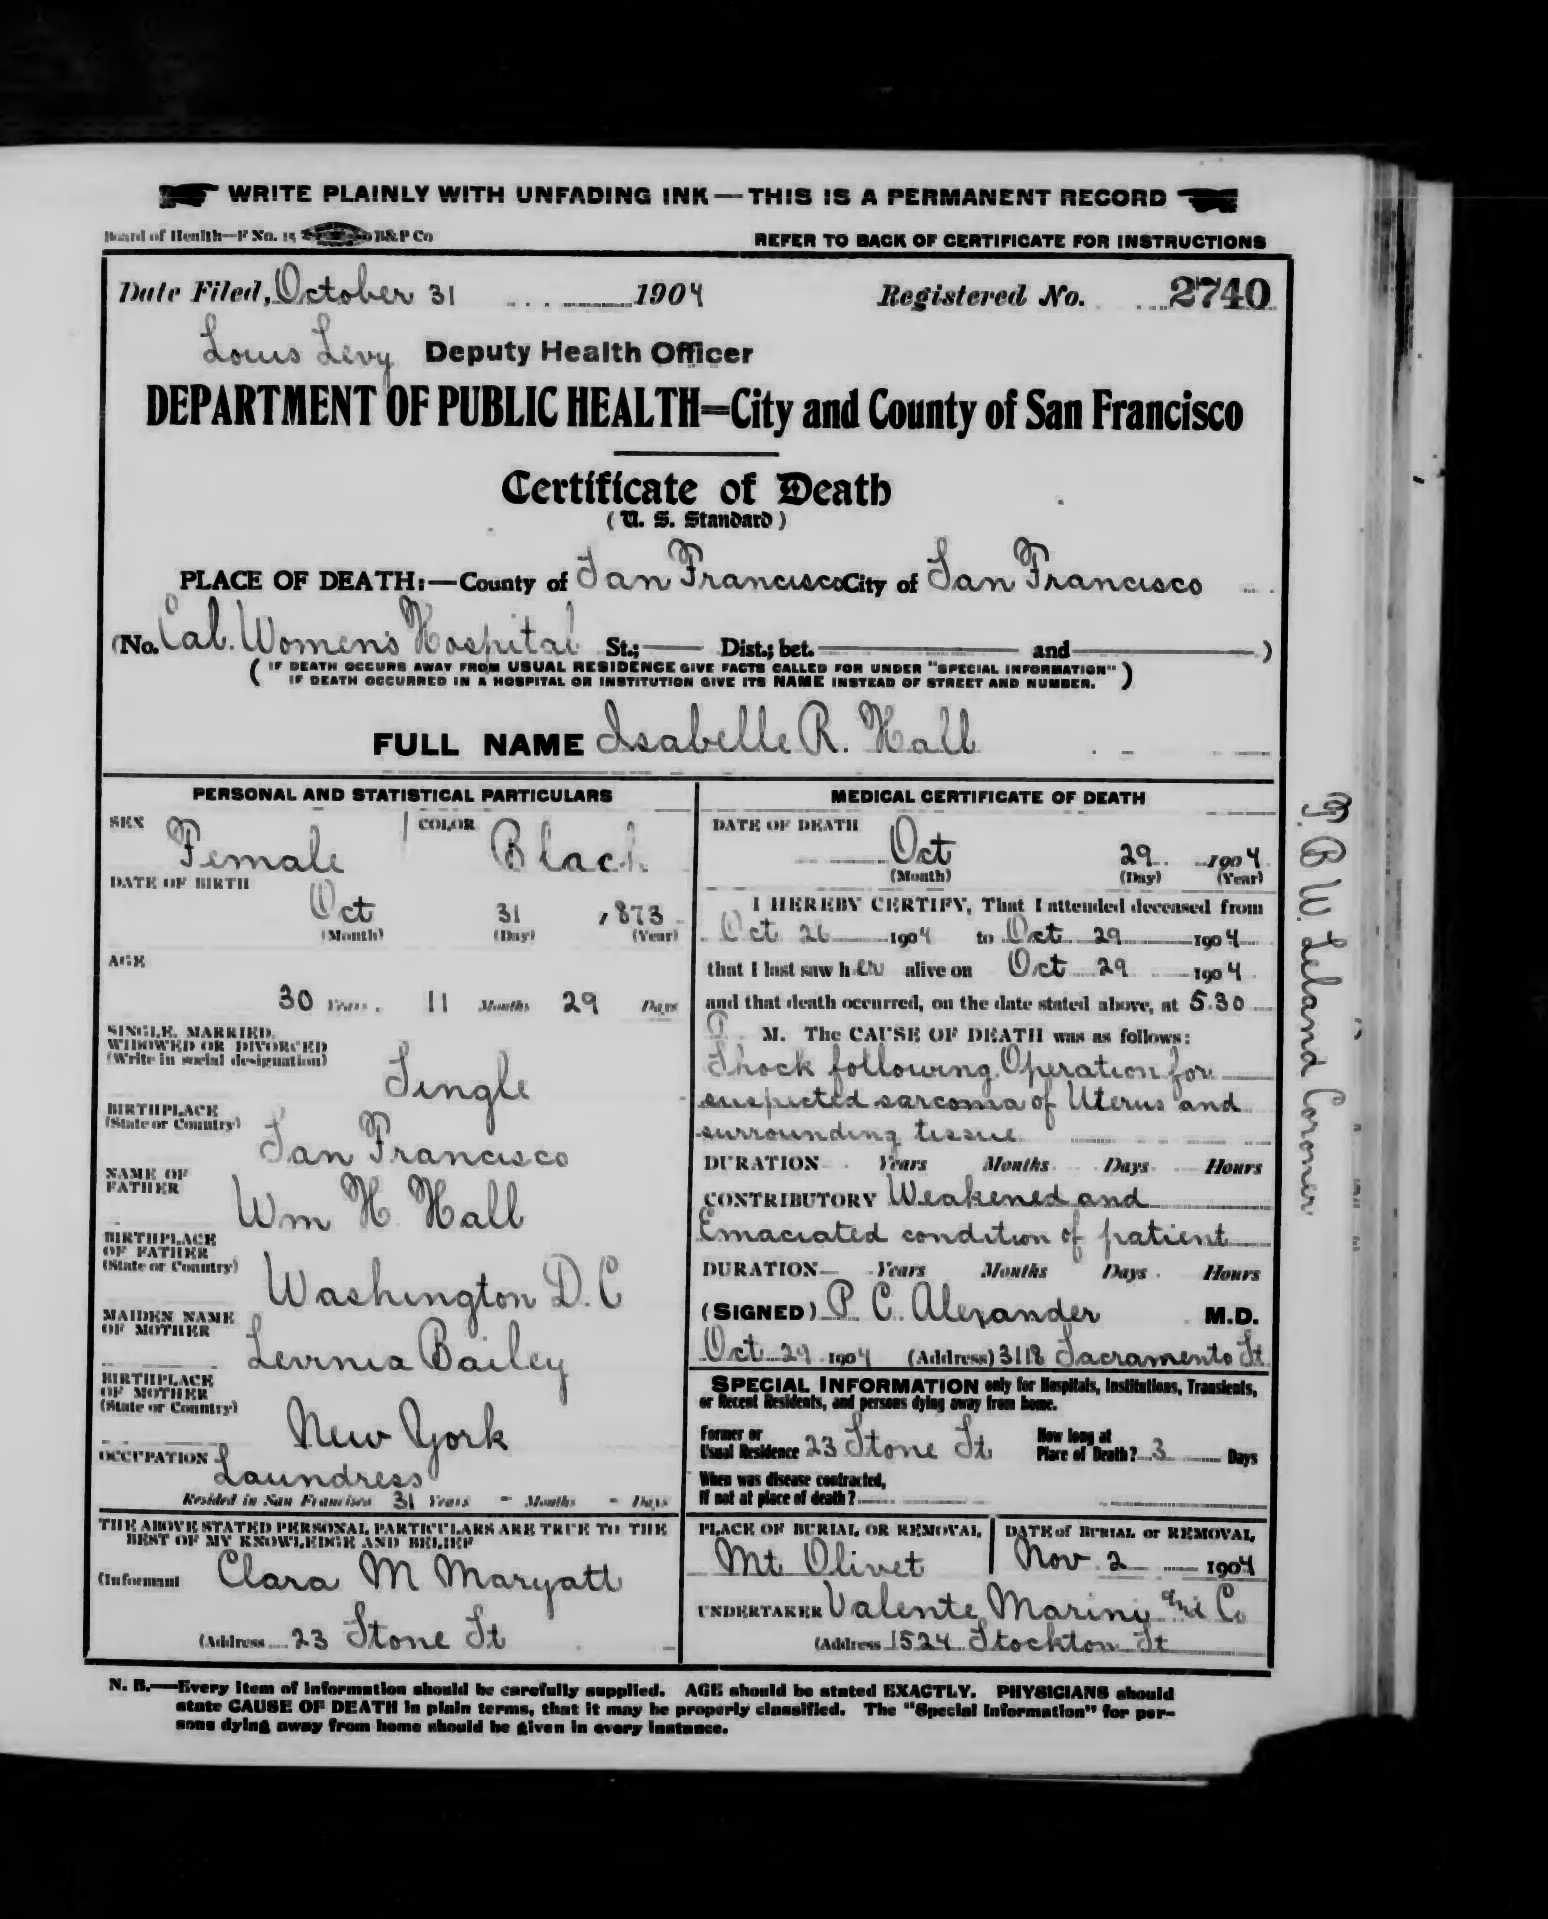 WRITE PLAINLY WITH UNFADING INK—THIS IS A PERMANENT RECORD
Board of Health—F No. 15 B&P Co
REFER TO BACK OF CERTIFICATE FOR INSTRUCTIONS
Date Filed, October 31 1904 Registered No. 2740
Louis Levy Deputy Health Officer
DEPARTMENT OF PUBLIC HEALTH=City and County of San Francisco
Certificate of Death
(U. S. Standard)
PLACE OF DEATH:—County of San Francisco City of San Francisco
(No. Cal. Womens Hospital St.; Dist.; bet. and )
(IF DEATH OCCURS AWAY FROM USUAL RESIDENCE GIVE FACTS CALLED FOR UNDER "SPECIAL INFORMATION"
IF DEATH OCCURRED IN A HOSPITAL OR INSTITUTION GIVE ITS NAME INSTEAD OF STREET AND NUMBER.)
FULL NAME Isabelle R. Hall
PERSONAL AND STATISTICAL PARTICULARS
SEX Female COLOR Black
DATE OF BIRTH
Oct 31 1873
(Month) (Day) (Year)
AGE
30 Years. 11 Months 29 Days
SINGLE, MARRIED,
WIDOWED OR DIVORCED
(Write in social designation)
Single
BIRTHPLACE
(State or Country)
San Francisco
NAME OF
FATHER
Wm H Hall
BIRTHPLACE
OF FATHER
(State or Country)
Washington D. C
MAIDEN NAME
OF MOTHER
Levinia Bailey
BIRTHPLACE
OF MOTHER
(State or Country)
New York
OCCUPATION Laundress
Resided in San Francisco 31 Years - Months - Days
THE ABOVE STATED PERSONAL PARTICULARS ARE TRUE TO THE
BEST OF MY KNOWLEDGE AND BELIEF
(Informant Clara M Maryatt
(Address 23 Stone St
MEDICAL CERTIFICATE OF DEATH
DATE OF DEATH
Oct 29 1904
(Month) (Day) (Year)
I HEREBY CERTIFY, That I attended deceased from
Oct 26 1904 to Oct 29 1904
that I last saw her alive on Oct 29 1904
and that death occurred, on the date stated above, at 5.30
P M. The CAUSE OF DEATH was as follows:
Shock following Operation for
suspected sarcoma of Uterus and
surrounding tissue
DURATION Years Months Days Hours
CONTRIBUTORY Weakened and
Emaciated condition of patient
DURATION Years Months Days Hours
(SIGNED) P. C. Alexander M.D.
Oct 29 1904 (Address) 3118 Sacramento St
SPECIAL INFORMATION only for Hospitals, Institutions, Transients,
or Recent Residents, and persons dying away from home.
Former or
Usual Residence 23 Stone St
How long at
Place of Death? 3 Days
When was disease contracted,
If not at place of death?
PLACE OF BURIAL OR REMOVAL
Mt Olivet
DATE of BURIAL or REMOVAL
Nov 2 1904
UNDERTAKER Valente Marini and Co
(Address 1524 Stockton St
N. B.—Every item of information should be carefully supplied. AGE should be stated EXACTLY. PHYSICIANS should
state CAUSE OF DEATH in plain terms, that it may be properly classified. The "Special Information" for per-
sons dying away from home should be given in every instance.
B W. Leland Coroner